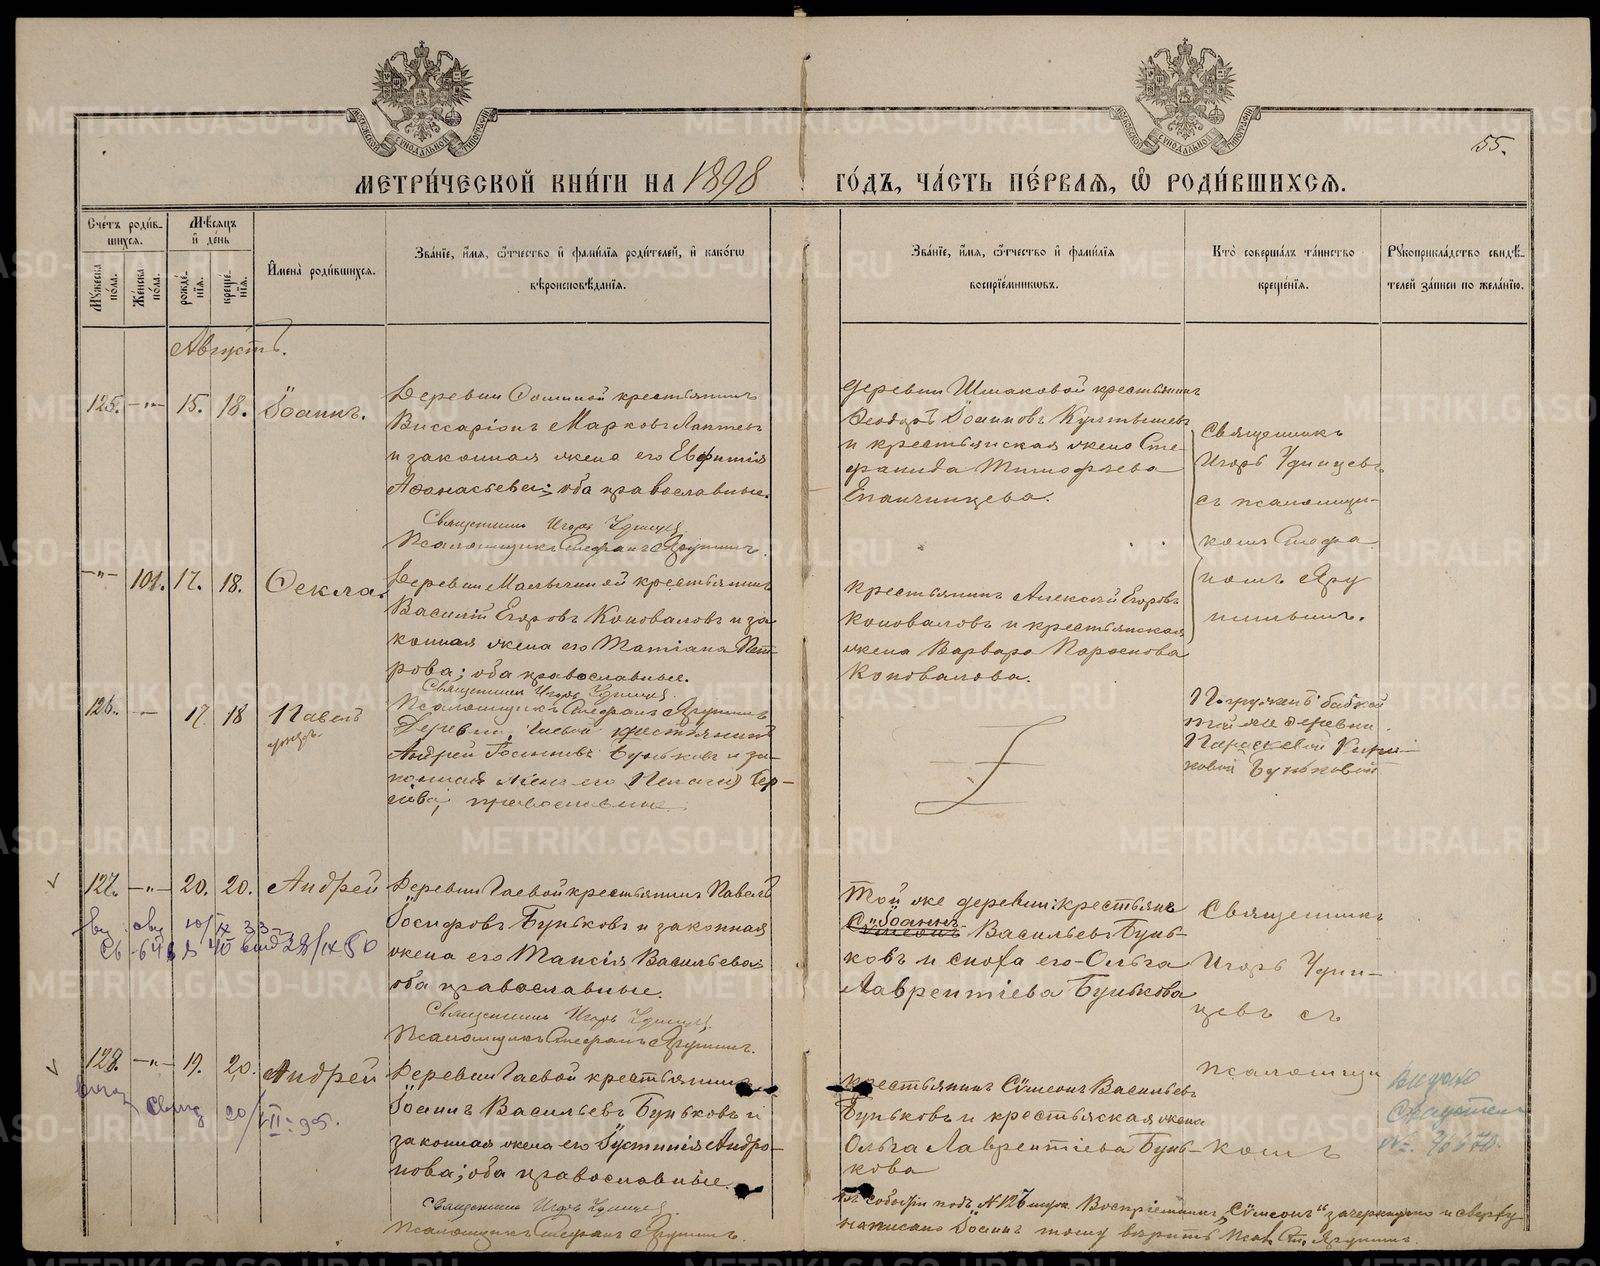 55.
МЕТРИ́ЧЕСКОЙ КНИ́ГИ НА 1898 ГО́ДЪ, ЧА́СТЬ ПЕ́РВАѦ, Ѿ РОДИ́ВШИХСѦ.
Счéтъ роди́в-
шихсѧ.
Мꙋжеска пóла.
Жéнска пóла.
Мѣ́сѧцъ
и дéнь
рождé-
нїѧ.
крещé-
нїѧ.
Именà роди́вшихсѧ.
Звáнїе, и́мѧ, ѻ́тчество и фами́лїѧ роди́телей, и какóгѡ
вѣроисповѣ́данїѧ.
Звáнїе, и́мѧ, ѻ́тчество и фами́лїѧ
воспрїéмникѡвъ.
Ктò совершáлъ тáинство
крещéнїѧ.
Рꙋкоприклáдство свидѣ́-
телей зáписи по желáнїю.
Августъ.
125. —„— 15. 18. Іоаннъ.
Деревни крестьянинъ
Виссаріонъ Марковъ Лаптевъ
и законная жена его Евфимія
Аѳанасьева; оба православные.
Священникъ Игорь Удинцев
Псаломщикъ Стефанъ Ярушинъ.
деревни Шмаковой крестьянинъ
Ѳеодоръ Іоанновъ
и крестьянская жена Сте-
фанида Тимофѣева
Епанчинцева.
Священникъ
Игорь Удинцевъ
съ псаломщи-
комъ Стефа-
номъ Яру
шинымъ.
—„— 101. 17. 18. Ѳекла.
Деревни крестьянинъ
Василій Егоровъ Коноваловъ и за
конная жена его Татіана Пет-
рова; оба православные.
Священникъ Игорь Удинцев.
Псаломщикъ Стефанъ Ярушинъ
крестьянинъ Алексѣй Егоровъ
Коноваловъ и крестьянская
жена Варвара
Коновалова.
126. — 17 18 Павелъ
Деревни Гаевой крестьянинъ
Андрей Бунковъ и за-
конная жена его Пелагія Сер-
гіева; православные.
Погруженъ бабкой
той же деревни
Параскевой
Буньковой
127. —„— 20. 20. Андрей
Деревни Гаевой крестьянинъ Павелъ
Іосифовъ Буньковъ и законная
жена его Таисія Васильева;
оба православные.
Священникъ Игорь Удинцев.
Псаломщикъ Стефанъ Ярушинъ.
Той же деревни: крестьянъ
Іоаннъ
Сѵмеонъ Васильевъ Бунь-
ковъ и сноха его Ольга
Лаврентіева Бунькова
Священникъ
Игорь Удин-
цевъ съ
псаломщи
комъ
128. —„— 19. 20. Андрей
Деревни Гаевой крестьянинъ
Іоаннъ Васильевъ Буньковъ и
законная жена его Іустинія Андро-
нова; оба православные.
Священникъ Игорь Удинцев.
Псаломщикъ Стефанъ Ярушинъ.
крестьянинъ Сѵмеонъ Васильевъ
Буньковъ и крестьяская жена
Ольга Лаврентіева Бунь-
кова
Въ событіи подъ №127 Воспріемникъ „Сѵмеонъ“ зачеркнуто и сверху
написано Іоаннъ тому вѣрить Псал. Ст. Ярушинъ.